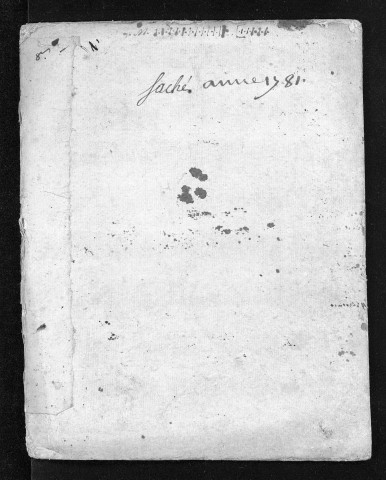 Saché. annee 1781.